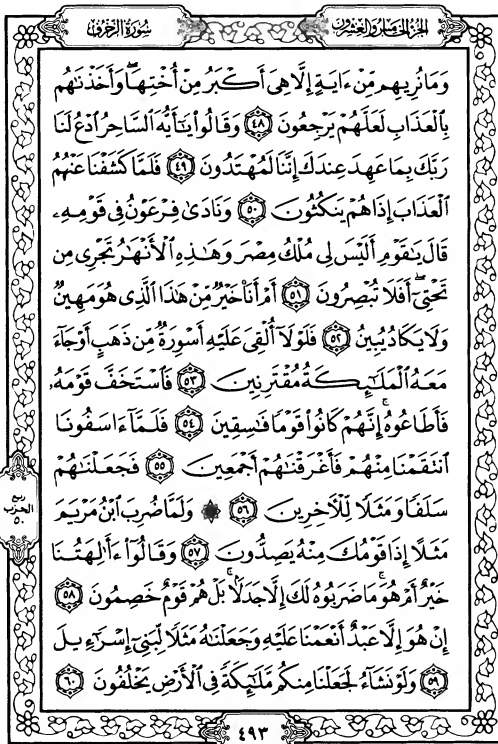 سُورَةُ الزُّخْرُفِ
الجزء الخامس والعشرون
وَمَا نُرِيهِم مِّنْ ءَايَةٍ إِلَّا هِىَ أَكْبَرُ مِنْ أُخْتِهَا وَأَخَذْنَٰهُم
بِٱلْعَذَابِ لَعَلَّهُمْ يَرْجِعُونَ ٤٨ وَقَالُوا۟ يَٰٓأَيُّهَ ٱلسَّاحِرُ ٱدْعُ لَنَا
رَبَّكَ بِمَا عَهِدَ عِندَكَ إِنَّنَا لَمُهْتَدُونَ ٤٩ فَلَمَّا كَشَفْنَا عَنْهُمُ
ٱلْعَذَابَ إِذَا هُمْ يَنكُثُونَ ٥٠ وَنَادَىٰ فِرْعَوْنُ فِى قَوْمِهِۦ
قَالَ يَٰقَوْمِ أَلَيْسَ لِى مُلْكُ مِصْرَ وَهَٰذِهِ ٱلْأَنْهَٰرُ تَجْرِى مِن
تَحْتِىٓ أَفَلَا تُبْصِرُونَ ٥١ أَمْ أَنَا۠ خَيْرٌ مِّنْ هَٰذَا ٱلَّذِى هُوَ مَهِينٌ
وَلَا يَكَادُ يُبِينُ ٥٢ فَلَوْلَآ أُلْقِىَ عَلَيْهِ أَسْوِرَةٌ مِّن ذَهَبٍ أَوْ جَآءَ
مَعَهُ ٱلْمَلَٰٓئِكَةُ مُقْتَرِنِينَ ٥٣ فَٱسْتَخَفَّ قَوْمَهُۥ
فَأَطَاعُوهُ إِنَّهُمْ كَانُوا۟ قَوْمًا فَٰسِقِينَ ٥٤ فَلَمَّآ ءَاسَفُونَا
ٱنتَقَمْنَا مِنْهُمْ فَأَغْرَقْنَٰهُمْ أَجْمَعِينَ ٥٥ فَجَعَلْنَٰهُمْ
سَلَفًا وَمَثَلًا لِّلْءَاخِرِينَ ٥٦ ۞ وَلَمَّا ضُرِبَ ٱبْنُ مَرْيَمَ
مَثَلًا إِذَا قَوْمُكَ مِنْهُ يَصِدُّونَ ٥٧ وَقَالُوٓا۟ ءَأَٰلِهَتُنَا
خَيْرٌ أَمْ هُوَ ۚ مَا ضَرَبُوهُ لَكَ إِلَّا جَدَلًۢا ۚ بَلْ هُمْ قَوْمٌ خَصِمُونَ ٥٨
إِنْ هُوَ إِلَّا عَبْدٌ أَنْعَمْنَا عَلَيْهِ وَجَعَلْنَٰهُ مَثَلًا لِّبَنِىٓ إِسْرَٰٓءِيلَ
٥٩ وَلَوْ نَشَآءُ لَجَعَلْنَا مِنكُم مَّلَٰٓئِكَةً فِى ٱلْأَرْضِ يَخْلُفُونَ ٦٠
ربع
الحزب
٥٠
٤٩٣